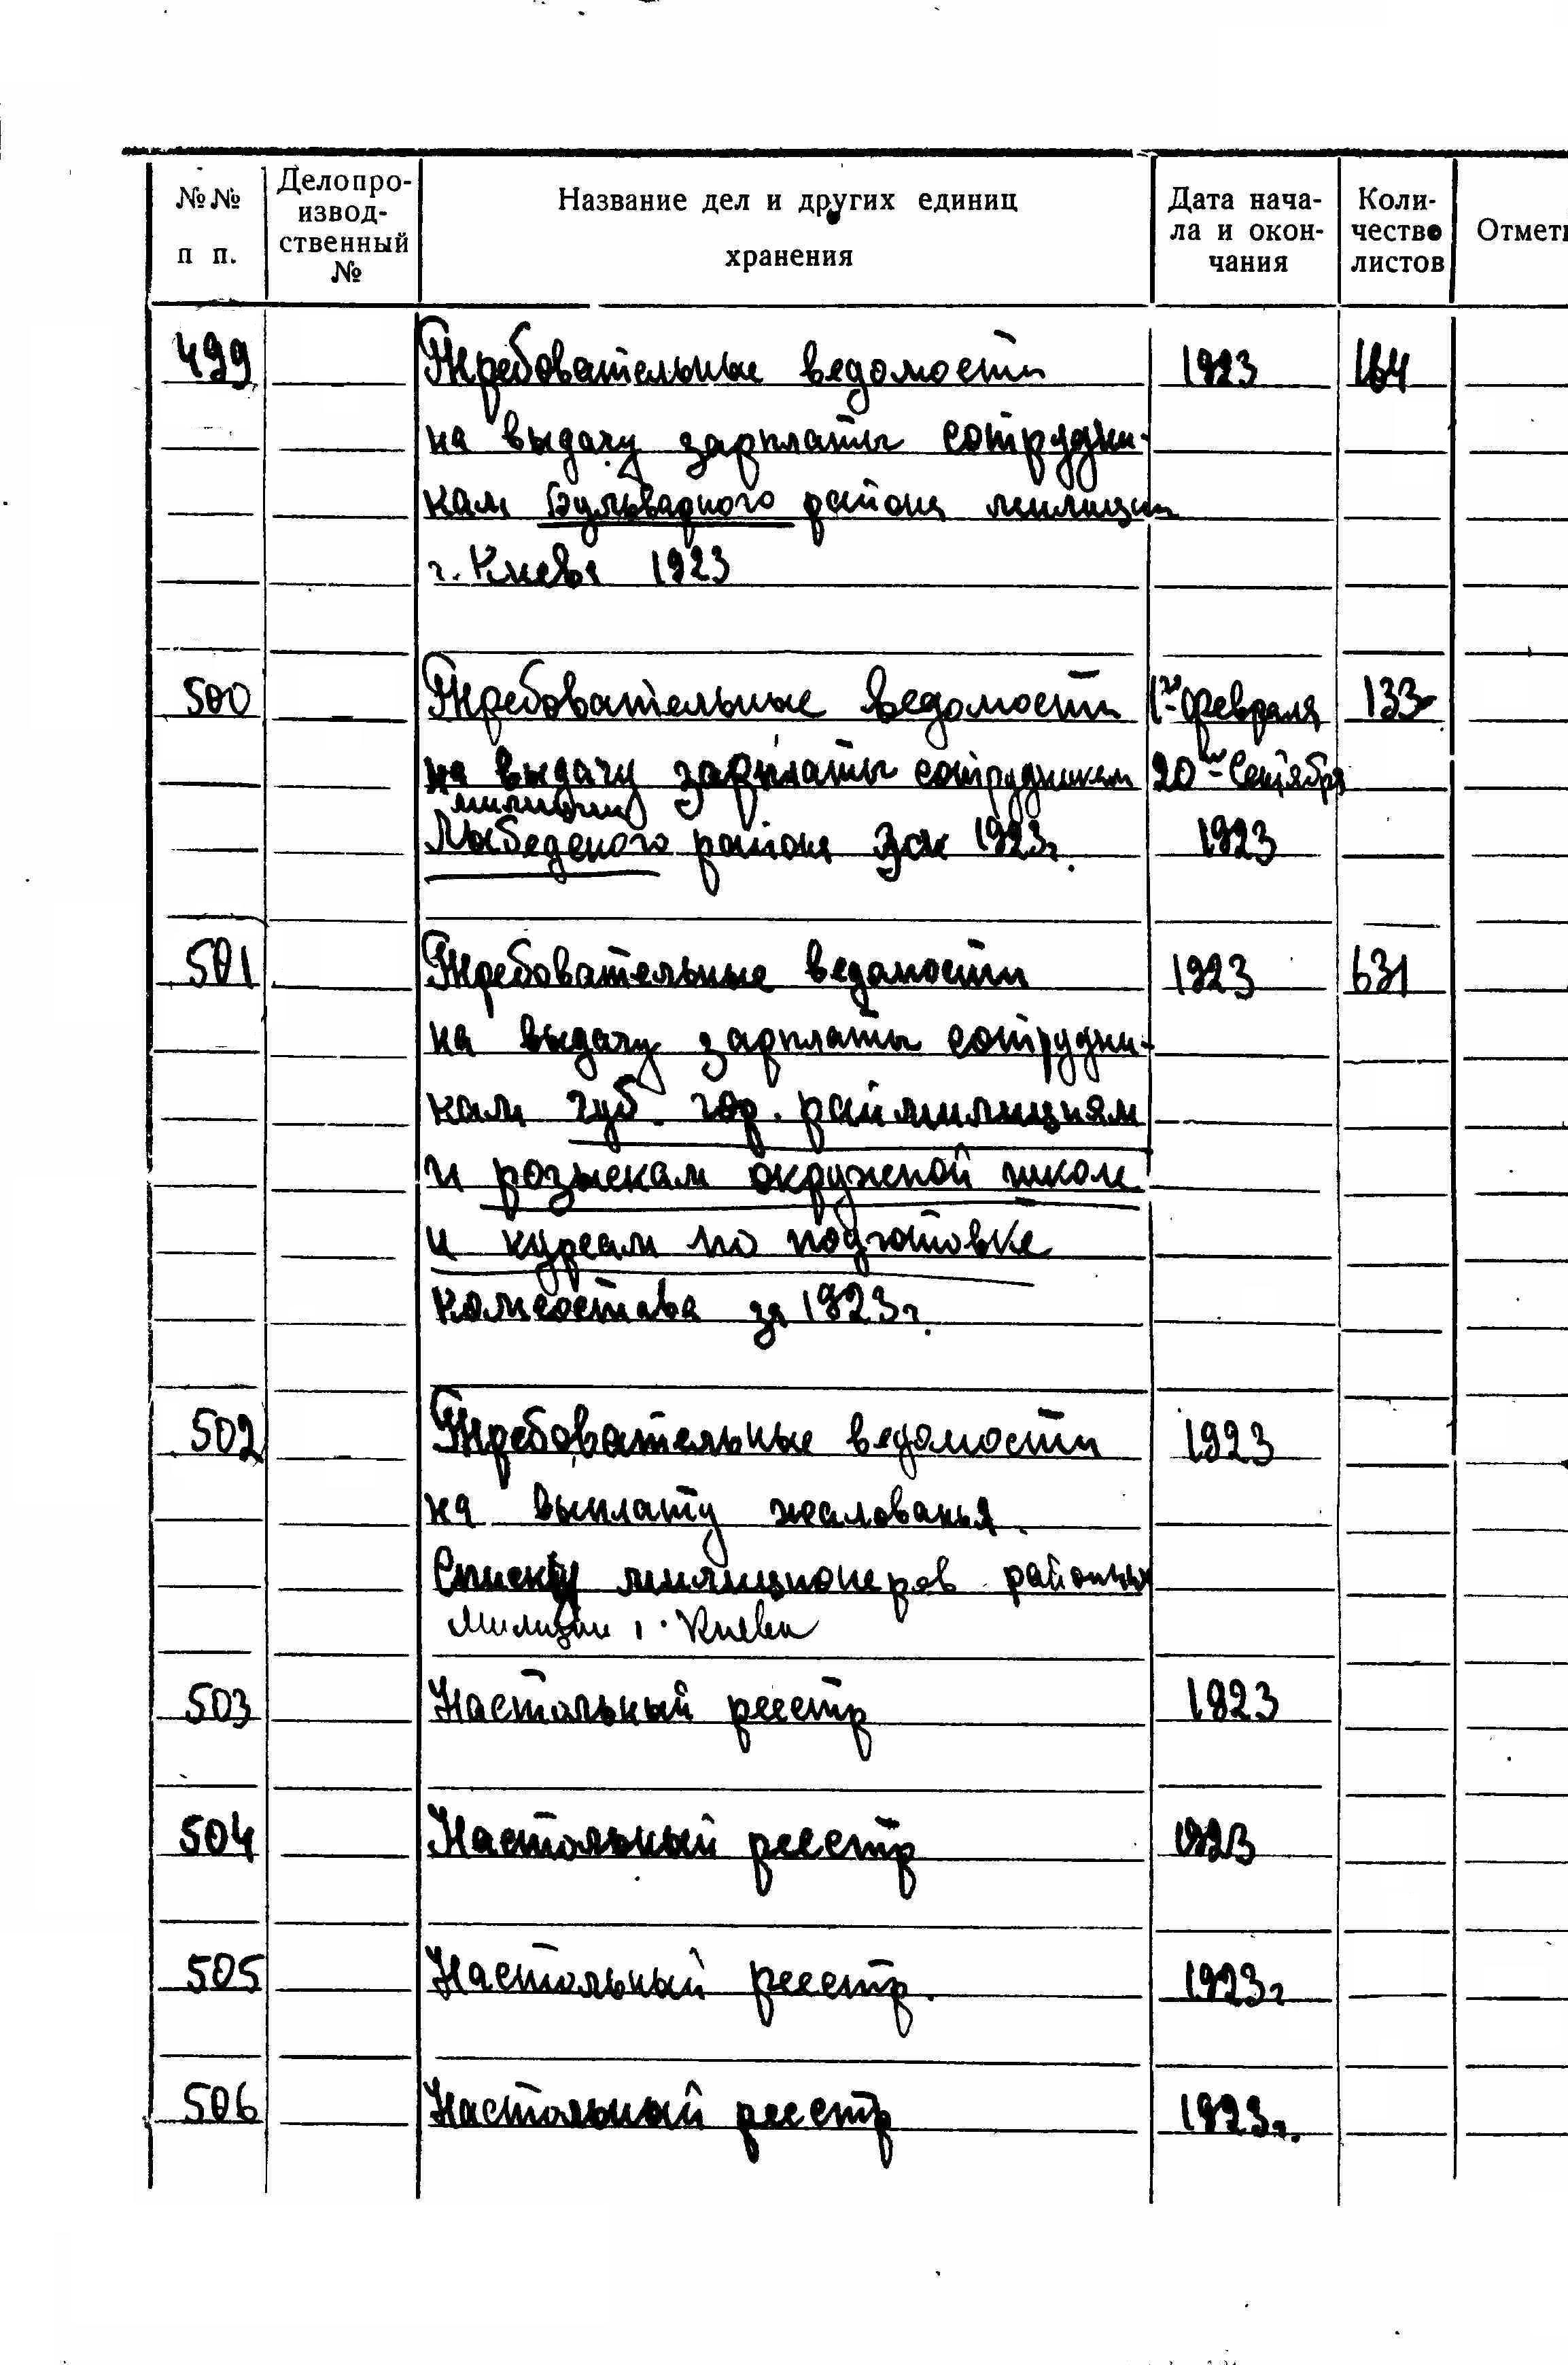 №№ п п.
Делопро-
извод-
ственный
№
Название дел и других единиц
хранения
Дата нача-
ла и окон-
чания
Коли-
чество
листов
Отмет
499 Требовательные ведомости 1923 164
на выдачу зарплаты сотрудни-
кам Бульварного района милиции
г. Киева 1923
500 Требовательные ведомости 1го февраля 133
на выдачу зарплаты сотрудникам 20го Сентября
милиции
Лыбедского района за 1923г. 1923
501 Требовательные ведомости 1923 631
на выдачу зарплаты сотрудни-
кам губ. гор. раймилициям
и розыскам окружной школе
и курсам по подготовке
комсостава за 1923г.
502 Требовательные ведомости 1923
на выплату жалованья.
Списки милиционеров районных
милиции г. Киева
503 Настольный реестр 1923
504 Настольный реестр 1923
505 Настольный реестр. 1923г
506 Настольный реестр 1923г.